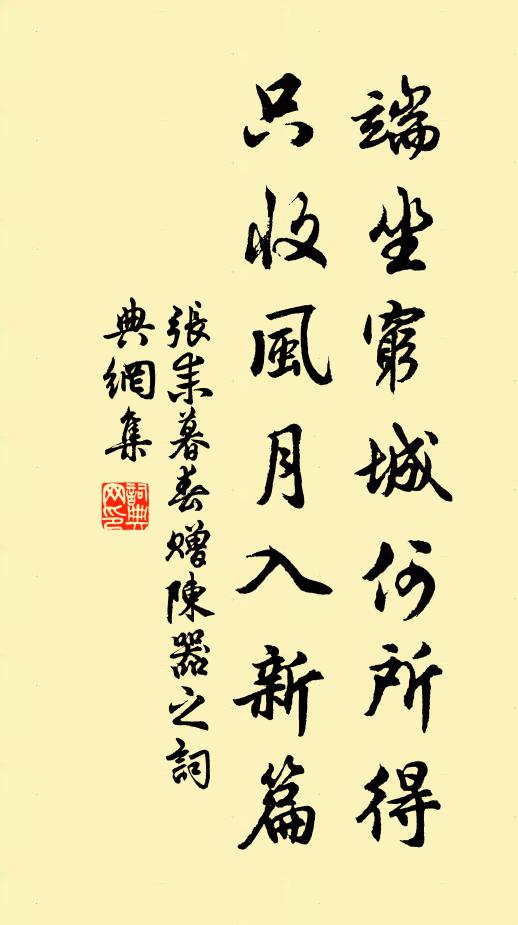 端坐窮城何所得
只收風月入新篇
張耒暮春贈陳器之詞
典網集
詞典網印